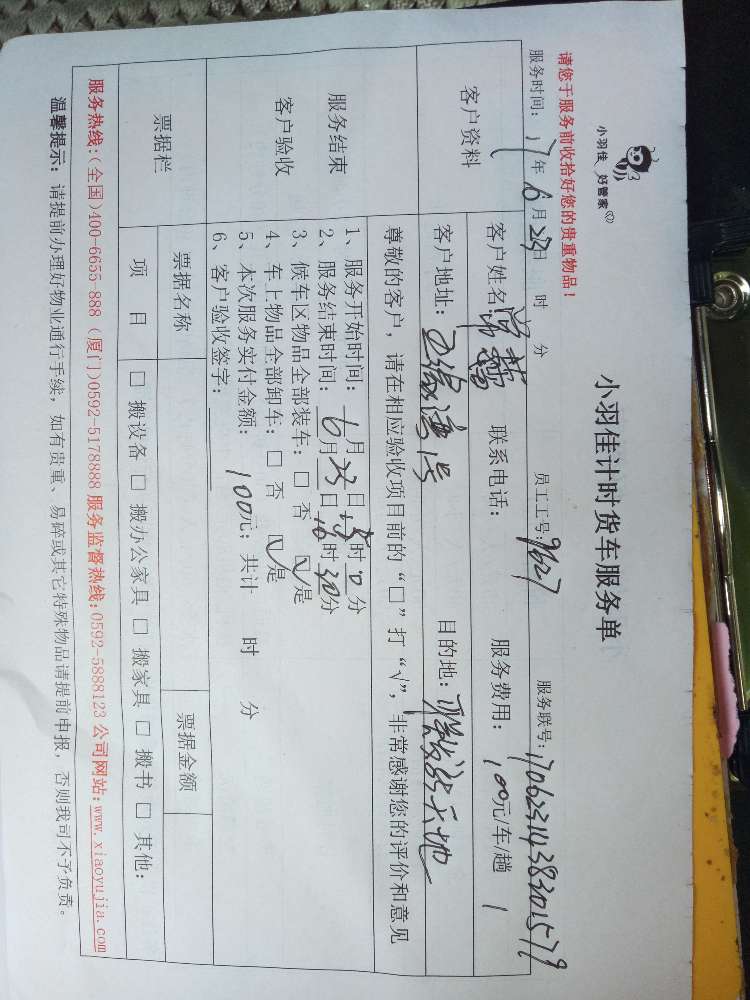 小羽佳 好管家
小羽佳计时货车服务单
请您于服务前收拾好您的贵重物品！
服务时间：17年6月23日 时 分 员工工号：9627 服务联号：1706231438301579
客户资料
客户姓名 联系电话： 服务费用：100元/车/趟 1
客户地址： 目的地：
尊敬的客户，请在相应验收项目前的“□”打“√”，非常感谢您的评价和意见
服务结束
客户验收
1、服务开始时间：6月23日15时10分
2、服务结束时间：6月23日16时30分
3、候车区物品全部装车：□ 否 ☑是
4、车上物品全部卸车：□ 否 ☑是
5、本次服务实付金额：100元；共计 时 分
6、客户验收签字：
票据栏
票据名称 票据金额
项 目 □ 搬设备 □ 搬办公家具 □ 搬家具 □ 搬书 □ 其他：
服务热线：(全国)400-6655-888 (厦门)0592-5178888 服务监督热线：0592-5888123 公司网站：www.xiaoyujia.com
温馨提示：请提前办理好物业通行手续，如有贵重、易碎或其它特殊物品请提前申报，否则我司不予负责。